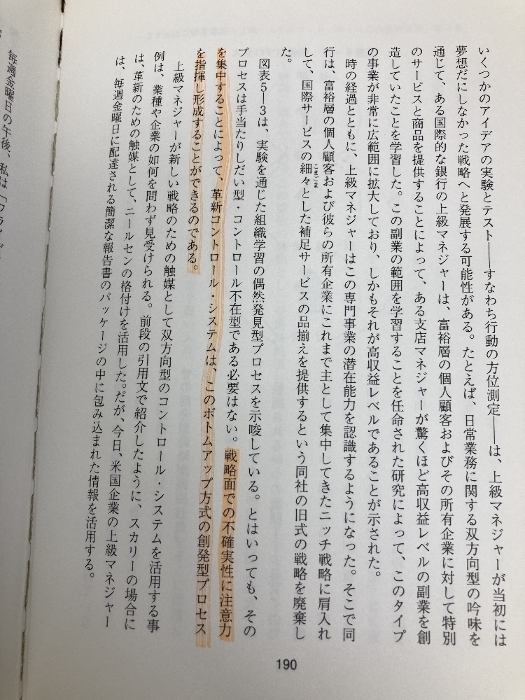 いくつかのアイデアの実験とテスト――すなわち行動の方位測定――は、上級マネジャーが当初には
夢想だにしなかった戦略へと発展する可能性がある。たとえば、日常業務に関する双方向型の吟味を
通じて、ある国際的な銀行の上級マネジャーは、富裕層の個人顧客およびその所有企業に対して特別
のサービスと商品を提供することによって、ある支店マネジャーが驚くほど高収益レベルの副業を創
造していたことを学習した。この副業の範囲を学習することを任命された研究によって、このタイプ
の事業が非常に広範囲に拡大しており、しかもそれが高収益レベルであることが示された。
時の経過とともに、上級マネジャーはこの専門事業の潜在能力を認識するようになった。そこで同
行は、富裕層の個人顧客および彼らの所有企業にこれまで主として集中してきたニッチ戦略に肩入れ
して、国際サービスの細々とした補足サービスの品揃えを提供するという同社の旧式の戦略を廃棄し
た。
図表5―3は、実験を通じた組織学習の偶然発見型プロセスを示唆している。とはいっても、その
プロセスは手当たりしだい型・コントロール不在型である必要はない。戦略面での不確実性に注意力
を集中することによって、革新コントロール・システムは、このボトムアップ方式の創発型プロセス
を指揮し形成することができるのである。
上級マネジャーが新しい戦略のための触媒として双方向型のコントロール・システムを活用する事
例は、業種や企業の如何を問わず見受けられる。前段の引用文で紹介したように、スカリーの場合に
は、革新のための触媒として、ニールセンの格付けを活用した。だが、今日、米国企業の上級マネジャー
は、毎週金曜日に配達される簡潔な報告書のパッケージの中に包み込まれた情報を活用する。
190
毎週金曜日の午後、私は